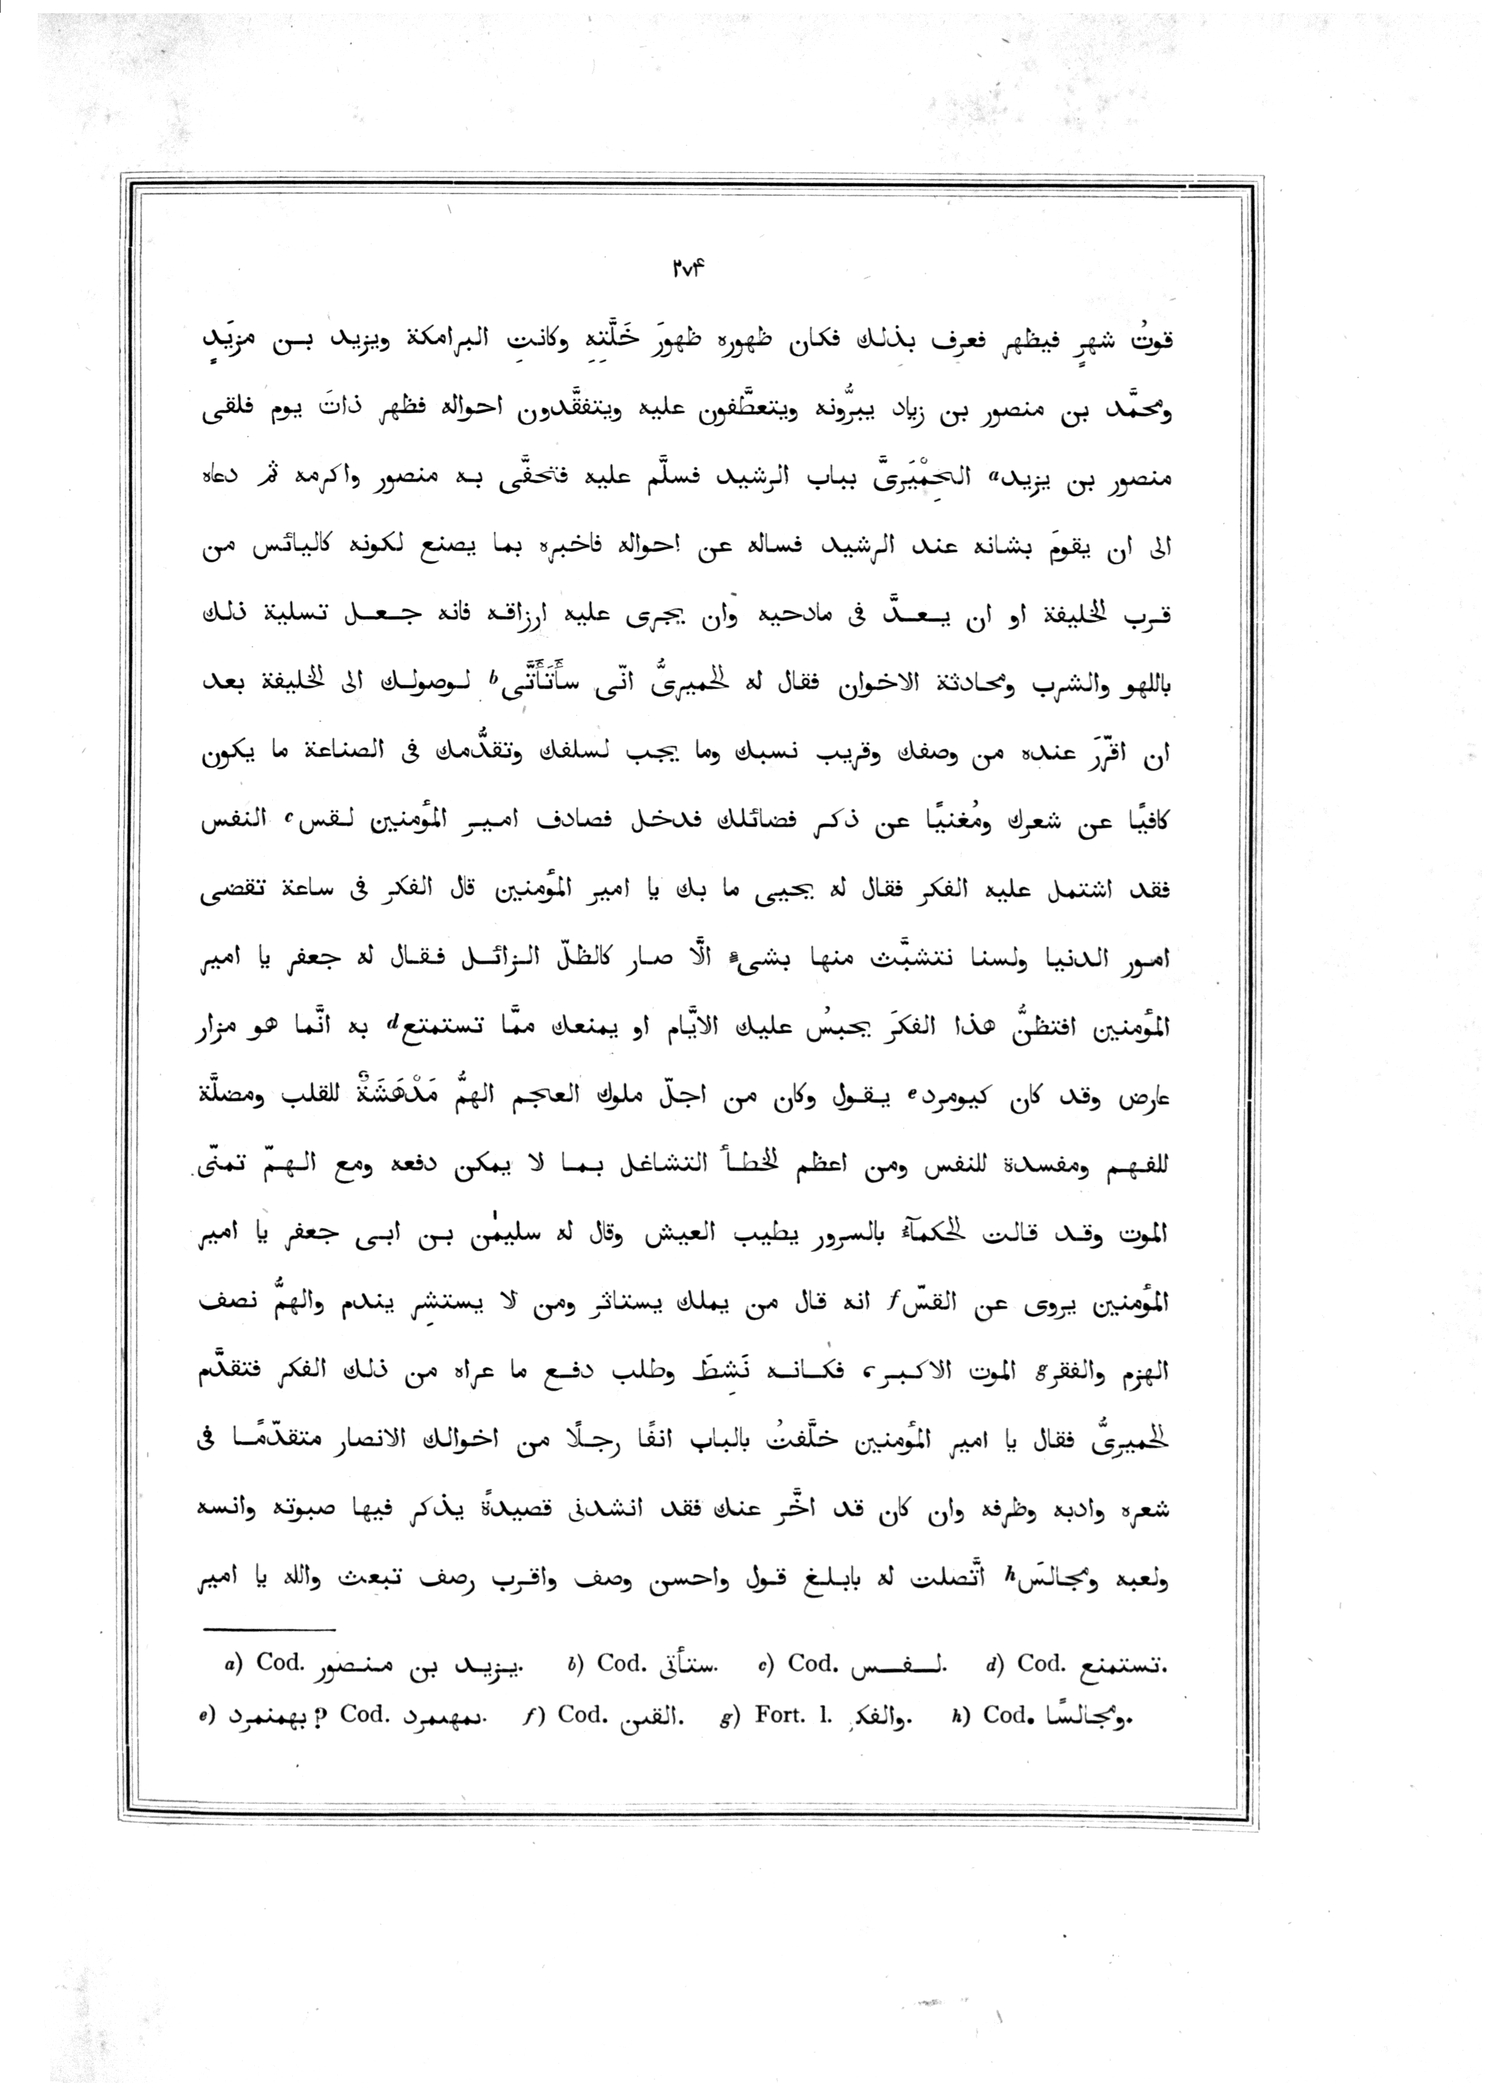 ٢٧۴
قوتُ شهرٍ فيظهر فعرف بذلك فكان ظهوره ظهورَ خَلَّتِهِ وكانتِ البرامكة ويزيد بن مزيَدٍ
ومحمَّد بن منصور بن زياد يبرُّونه ويتعطَّفون عليه ويتفقَّدون احواله فظهر ذاتَ يوم فلقى
منصور بن يزيدa الحِمْيَرىَّ بباب الرشيد فسلَّم عليه فتحفَّى به منصور واكرمه ثم دعاه
الى ان يقومَ بشانه عند الرشيد فساله عن احواله فاخبره بما يصنع لكونه كاليائس من
قرب الخليفة او ان يعدَّ فى مادحيه وان يجرى عليه ارزاقه فانه جعل تسلية ذلك
باللهو والشرب ومحادثة الاخوان فقال له الحميرىُّ انّى سأَتَأَتَّى b لوصولك الى الخليفة بعد
ان اقرّرَ عنده من وصفك وقريب نسبك وما يجب لسلفك وتقدُّمك فى الصناعة ما يكون
كافيًا عن شعرك ومُغنيًا عن ذكر فضائلك فدخل فصادف امير المؤمنين لقس c النفس
فقد اشتمل عليه الفكر فقال له يحيى ما بك يا امير المؤمنين قال الفكر فى ساعة تقضى
امور الدنيا ولسنا نتشبَّث منها بشىء الَّا صار كالظلّ الزائل فقال له جعفر يا امير
المؤمنين افتظنُّ هذا الفكرَ يحبسُ عليك الايَّام او يمنعك ممَّا تستمتعd به انَّما هو مزار
عارض وقد كان كيومردe يقول وكان من اجلّ ملوك العجم الهمُّ مَدْهَشَةٌ للقلب ومضلَّة
للفهم ومفسدة للنفس ومن اعظم الخطأ التشاغل بما لا يمكن دفعه ومع الهمّ تمنّى
الموت وقد قالت الحكمآء بالسرور يطيب العيش وقال له سليمٰن بن ابى جعفر يا امير
المؤمنين يروى عن القسّf انه قال من يملك يستاثر ومن لا يستشِر يندم والهمُّ نصف
الهرم والفقرg الموت الاكبر، فكانه نَشِطَ وطلب دفع ما عراه من ذلك الفكر فتقدَّم
الحميرِىُّ فقال يا امير المؤمنين خلَّفتُ بالباب انفًا رجلًا من اخوالك الانصار متقدّمًا فى
شعره وادبه وظرفه وان كان قد اخَّر عنك فقد انشدنى قصيدةً يذكر فيها صبوته وانسه
ولعبه ومجالسَh اتَّصلت له بابلغ قول واحسن وصف واقرب رصف تبعث والله يا امير
a) Cod. يزيد بن منصور. b) Cod. ستأتى. c) Cod. لفس. d) Cod. تستمنع.
e) بهمنمرد? Cod. f) Cod. القس. g) Fort. l. والفكر. h) Cod. ومجالسًا.